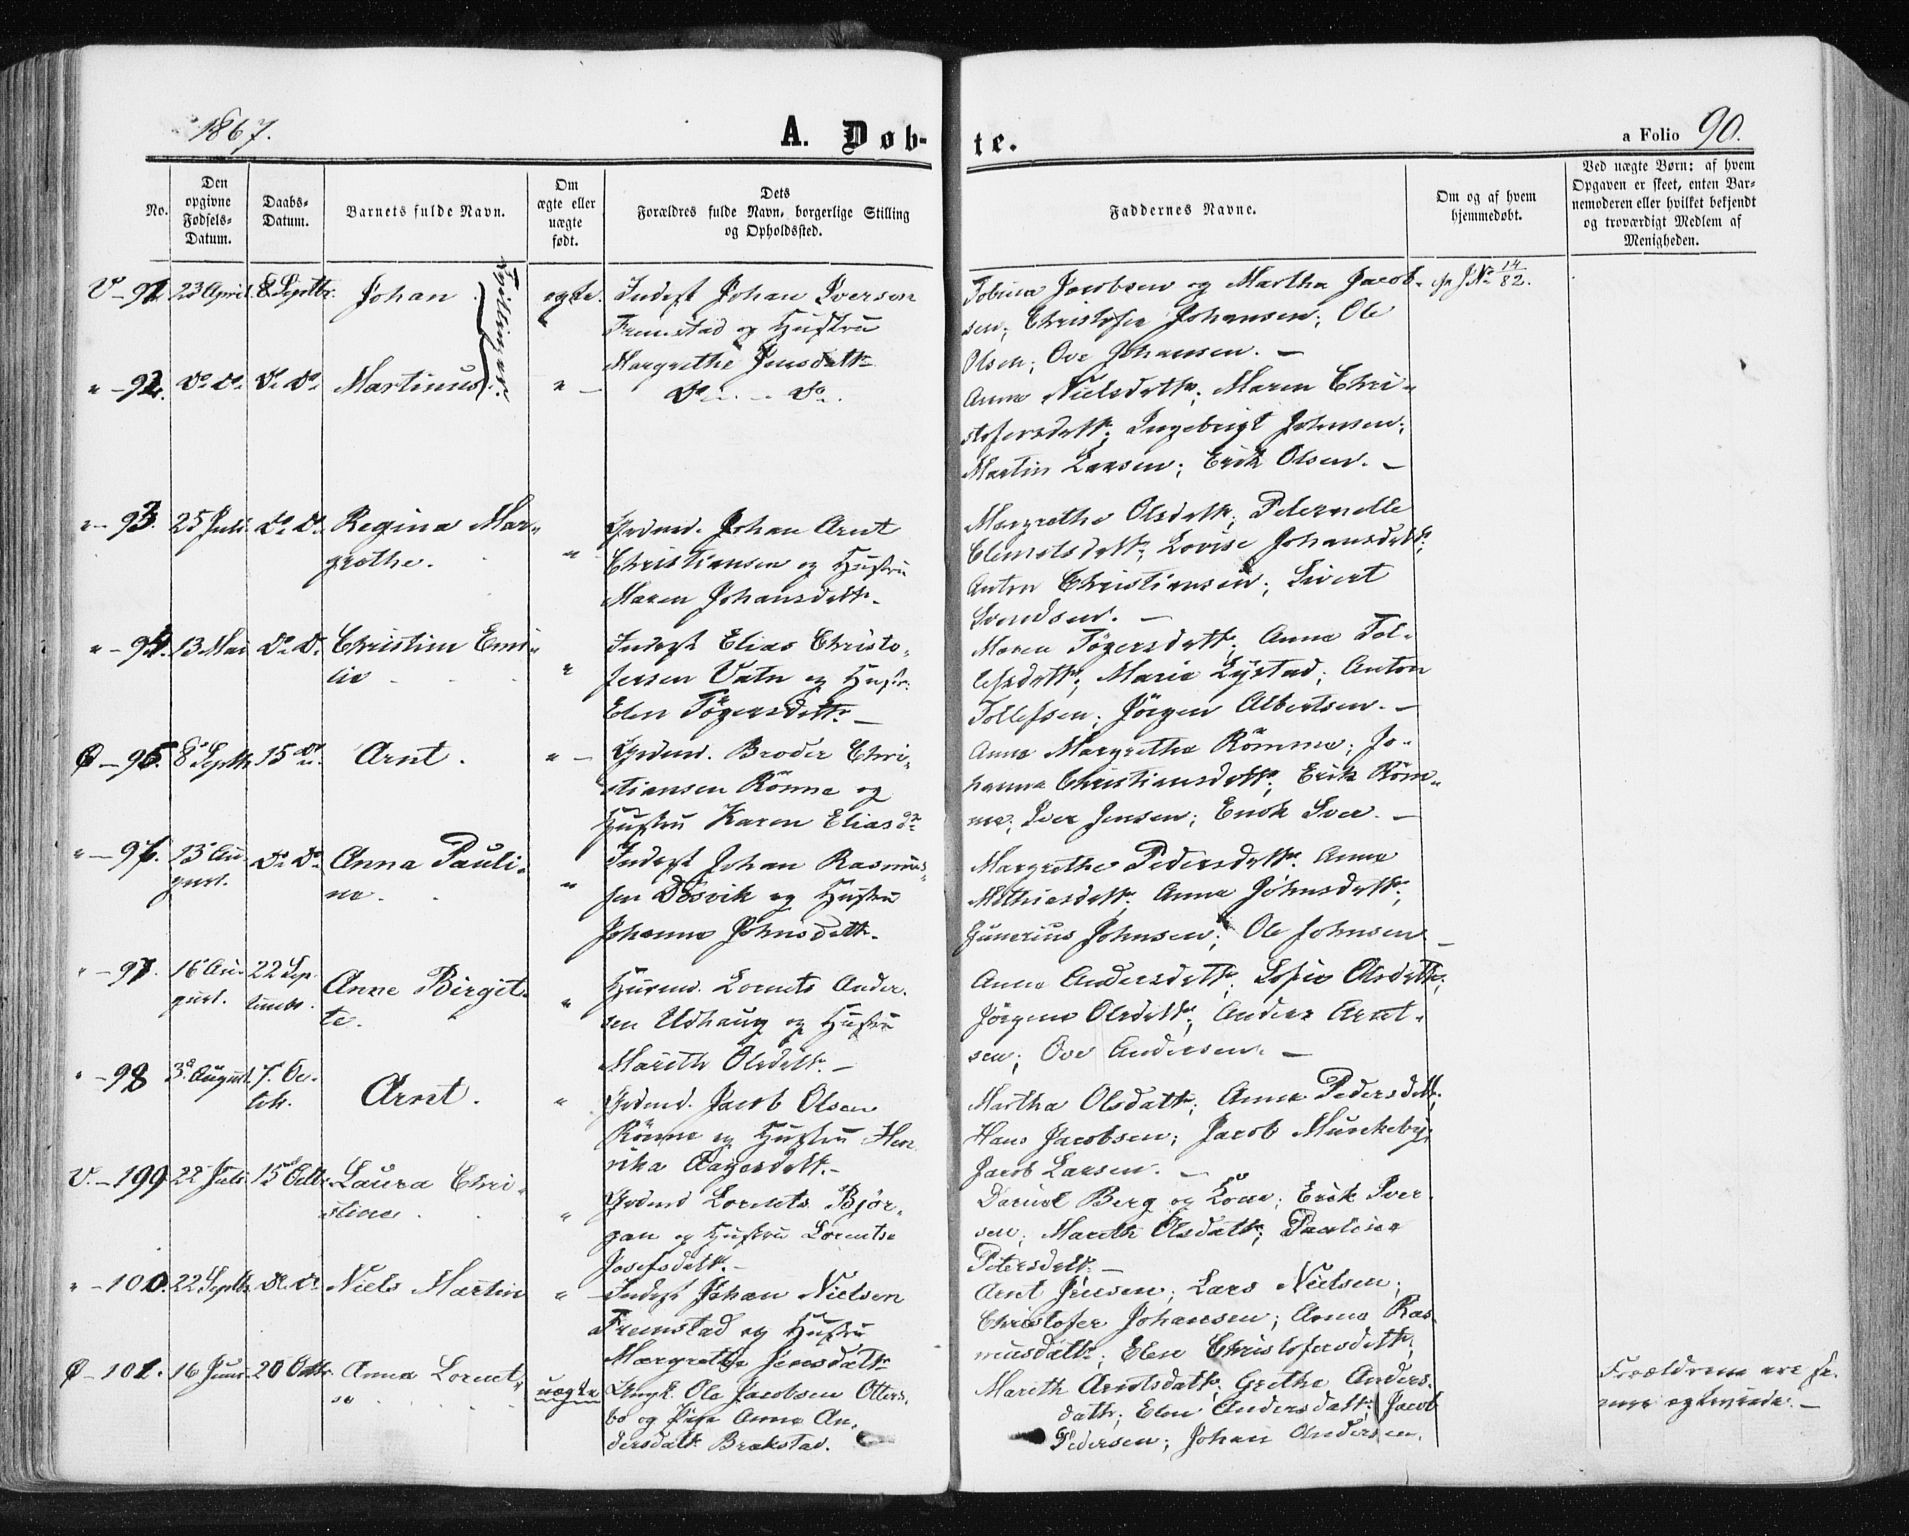 1867.
A. Døb-
te.
a Folio 90.
No.
Den opgivne Fødsels-Datum.
Daabs-Datum.
Barnets fulde Navn.
Om ægte eller uægte født.
Dets Forældres fulde Navn, borgerlige Stilling og Opholdssted.
Faddernes Navne.
Om og af hvem hjemmedøbt.
Ved uægte Børn: af hvem Opgaven er skeet, enten Barnemoderen eller hvilket bekjendt og troværdigt Medlem af Menigheden.
V - 91. 23 April. 8 Septbr. Johan Tvillinger. ægte. Inderst Johan Iversen
Fremstad og Hustru
Margrethe Jensdatt.
Jacobsen og Martha Jacob-
sen; Christofer Johansen; Ole
Olsen; Ove Johansen. —
JN. 14/82.
" - 92. Do. Do. Do. Do. Martinus. " - Do. - Do.
Anna Nielsdatt.; Maren Chri-
stofersdatt.; Ingebrigt Johnsen;
Martin Larsen; Erik Olsen. —
" - 93. 25 Juli. Do. Do. Regina Mar-
grethe. " Grdmd. Johan Arnt
Christiansen og Hustru
Maren Johansdatt.
Margrethe Olsdatt.; Peternelle
Lovise Johansdatt.;
Anton Christiansen; Sivert
Svendsen. —
" - 94. 13 Mai Do. Do. Emi-
lie " Inderst Elias Christo-
fersen Vatn og Hustr.
Elen Tøgersdatt. —
Maren Tøgersdatt.; Anna Tol-
lefsdatt.; Marie Lystad; Anton
Tollefsen; Jörgen Albertsen. —
Ø - 95. 8 Septbr. 15 Do. Arnt. " - Grdmd. Broder Chri-
stiansen Rönne og
Hustru Karen Eliasd.
Anna Margretha Römme; Jo-
hanna Christiansdatt.; Erik Röm-
me; Iver Jensen; Iver. —
" - 96. 13 Au-
gust. Do. Do. Anna Pauli-
ne. " Inderst Johan Rasmus-
sen Døsvik og Hustru
Johanna Johnsdatt.
Margrethe Pedersdatt. Anna
Mathiasdatt.; Anna Johnsdatt.;
Gunerius Johnsen; Ole Johnsen —
" - 97. 16 Au-
gust. 22 Sep-
tembr. Anne Birgit-
te. " Husmd. Lornts Ander-
sen Udhaug og Hustru
Marith Olsdatt. —
Anna Andersdatt.; Sofie Olsdatt.;
Jörgine Olsdatt.; Anders Arnt-
sen; Ove Andersen. —
" - 98 3. August. 7. Oc-
tbr. Arnt. " Grdmd. Jacob Olsen
Rönne og Hustru Hen-
rika Aagesdatt. —
Martha Olsdatt.; Anna Pedersdatt.;
Hans Jacobsen; Jacob Munkeby;
Jacob Larsen. —
V. - 199 22 Juli. 15 Octbr. Laura Chri-
stine " Grdmd Lornts Bjør-
gan og Hustru Lorentse
Josefsdatt. —
Daniel Berg og Kone; Erik Iver-
sen; Marith Olsdatt.; Pauline
Petersdatt. —
" - 100. 22 Septbr. Do. Do. Niels Martin " Inderst Johan Nielsen
Fremstad og Hustru
Margrethe Jensdatt.
Arnt Jensen; Lars Nielsen;
Christofer Johansen; Anna Ras-
musdatt.; Elen Christofersdatt.;
Ø - 101. 16 Juni 20 Octbr. Anna Lornt-
se uægte Ungk. Ole Jacobsen Otters-
bo og Pige Anna An-
dersdatt. Brækstad.
Marith Arntsdatt.; Grethe Anders-
datt.; Elen Andersdatt.; Jacob
Pedersen; Johan Andersen.
Forældrene ere